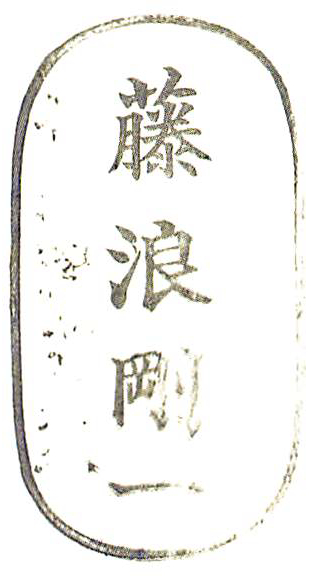 藤浪剛一